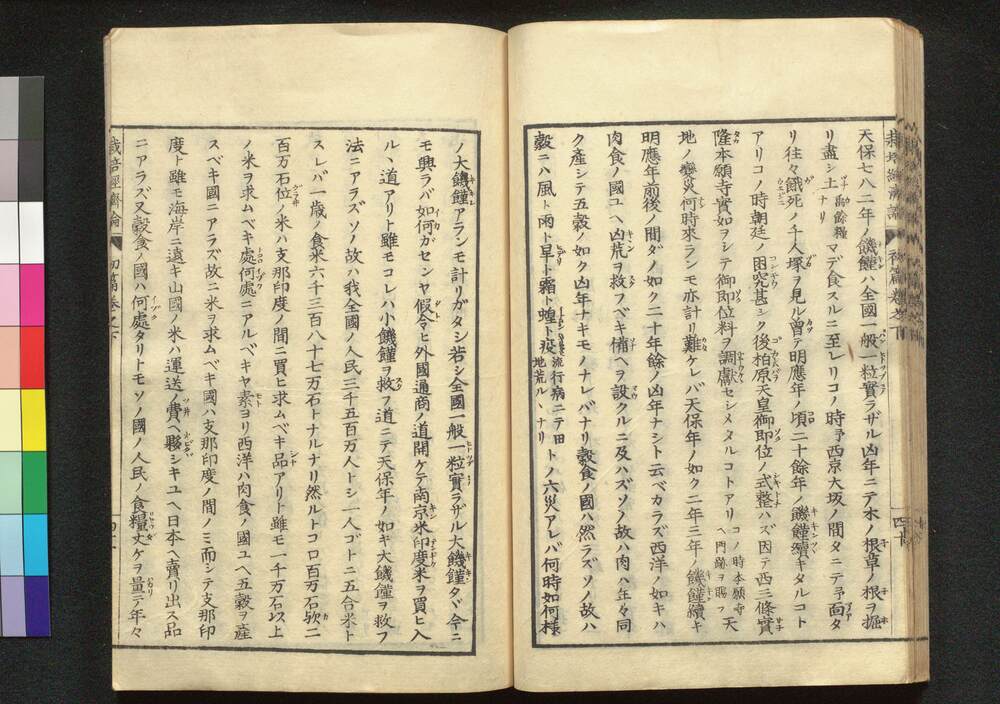 天保七八二年ノ饑饉ハ全国一般一粒實ラザル凶年ニテ木ノ根草ノ根ヲ掘
リ盡シ土ナリ禹餘糧マデ食スルニ至レリコノ時予西京大坂ノ間タニテ予面タ
リ往々餓死ノ千人塚ヲ見ル曽テ明應年ノ頃二十餘年ノ饑饉續キタルコト
アリコノ時朝廷ノ困究甚シク後柏原天皇御即位ノ式整ハズ因テ西三條實
隆本願寺實如ヲシテ御即位料ヲ調献セシメタルコトアリコノ時本願寺ヘ門跡ヲ賜フ天
地ノ變災何時來ランモ亦計リ難ケレバ天保年ノ如ク二年三年ノ饑饉續キ
明應年前後ノ間ダノ如ク二十年餘ノ凶年ナシト云ベカラズ西洋ノ如キハ
肉食ノ國ユヘ凶荒ヲ救フベキ備ヘヲ設クルニ及ハズソノ故ハ肉ハ年々同
ク産シテ五穀ノ如ク凶年ナキモノナレバナリ穀食ノ國ハ然ラズソノ故ハ
穀ニハ風ト雨ト旱ト霜ト蝗ト疫流行病ニテ田地荒ルヽナリトノ六災アレバ何時如何様
ノ大饑饉アランモ計リガタシ若シ全國一般一粒實ラザル大饑饉タヾ今ニ
モ興ラバ如何ガセンヤ假令ヒ外國通商ノ道開ケテ南京米印度米ヲ買ヒ入
ルヽ道アリト雖モコレハ小饑饉ヲ救フ道ニテ天保年ノ如キ大饑饉ヲ救フ
法ニアラズソノ故ハ我全國ノ人民三千五百万人トシ一人ゴトニ五合米ト
スレバ一歳ノ食米六千三百八十七万石トナルナリ然ルトコロ百万石歟二
百万石位ノ米ハ支那印度ノ間ニ買ヒ求ムベキ品アリト雖モ一千万石以上
ノ米ヲ求ムベキ處何處ニアルベキヤ素ヨリ西洋ハ肉食ノ國ユヘ五穀ヲ産
スベキ國ニアラズ故ニ米ヲ求ムベキ國ハ支那印度ノ間ノミ而シテ支那印
度ト雖モ海岸ニ遠キ山國ノ米ハ運送ノ費ヘ夥シキユヘ日本ヘ賣リ出ス品
ニアラズ又穀食ノ國ハ何處タリトモソノ國ノ人民ノ食糧丈ケヲ量テ年々
栽培經濟論 初篇巻之下